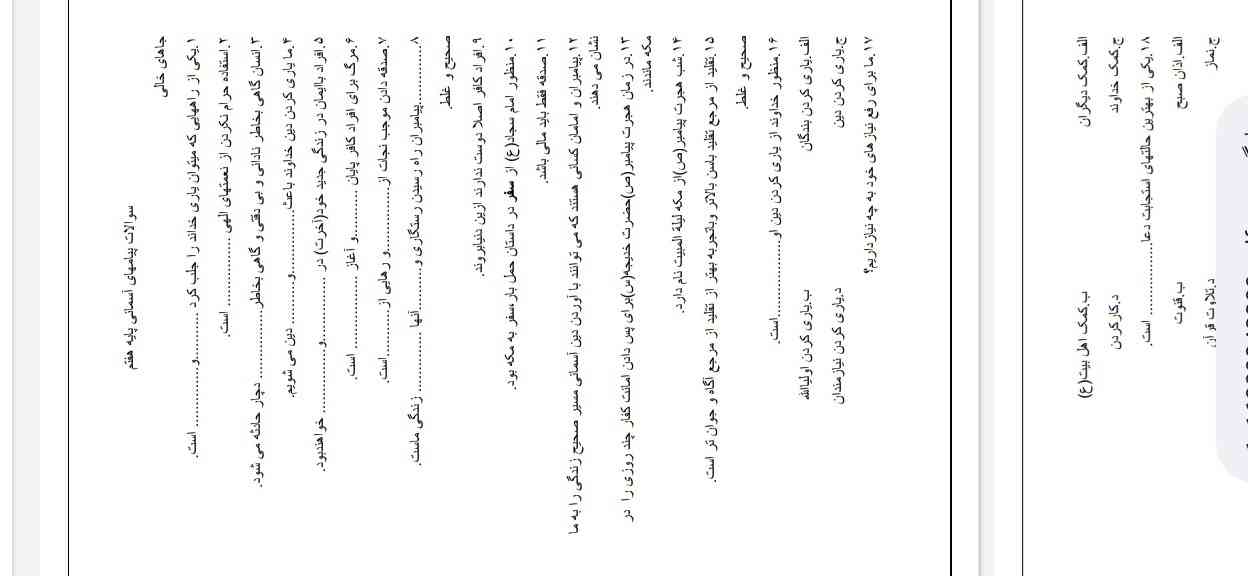 سوالات پیامهای آسمانی پایه هفتم
جاهای خالی
۱.یکی از راههایی که میتوان یاری خداند را جلب کرد ............و............ است.
۲.استفاده حرام نکردن از نعمتهای الهی ............ است.
۳.انسان گاهی بخاطر نادانی و بی دقتی و گاهی بخاطر............ دچار حادثه می شود.
۴.ما یاری کردن دین خداوند باعث............و............ دین می شویم.
۵.افراد باایمان در زندگی جدید خود(آخرت) در ............و............ خواهندبود.
۶.مرگ برای افراد کافر پایان ............و آغاز ............ است.
۷.صدقه دادن موجب نجات از............و رهایی از............است.
۸............پیامبران راه رسیدن رستگاری و............آنها ............ زندگی ماست.
صحیح و غلط
۹.افراد کافر اصلا دوست ندارند ازین دنیابروند.
۱۰.منظور امام سجاد(ع) از سفر در داستان حمل بار،سفر به مکه بود.
۱۱.صدقه فقط باید مالی باشد.
۱۲.پیامبران و امامان کسانی هستند که می توانند با آوردن دین آسمانی مسیر صحیح زندگی را به ما
نشان می دهند.
۱۳.در زمان هجرت پیامبر(ص)حضرت خدیجه(س)برای پس دادن امانت کفار چند روزی را در
مکه ماندند
۱۴.شب هجرت پیامبر(ص)از مکه لیلة المبیت نام دارد.
۱۵.تقلید از مرجع تقلید باسن بالاتر وباتجربه بهتر از تقلید از مرجع آگاه و جوان تر است.
صحیح و غلط
۱۶.منظور خداوند از یاری کردن دین او............است.
الف.یاری کردن بندگان ب.یاری کردن اولیاالله
ج.یاری کردن دین د.یاری کردن نیازمندان
۱۷.ما برای رفع نیازهای خود به چه نیازداریم؟
الف.کمک دیگران ب.کمک اهل بیت(ع)
ج.کمک خداوند د.کارکردن
۱۸.یکی از بهترین حالتهای استجابت دعا............ است.
الف.اذان صبح ب.قنوت
ج.نماز د.تلاوت قرآن